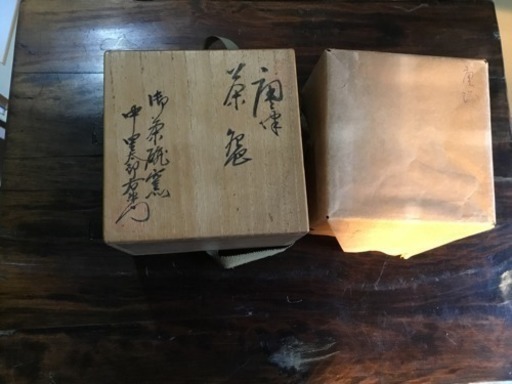 唐津
茶盌
御茶碗窯
中里太郎右衛門